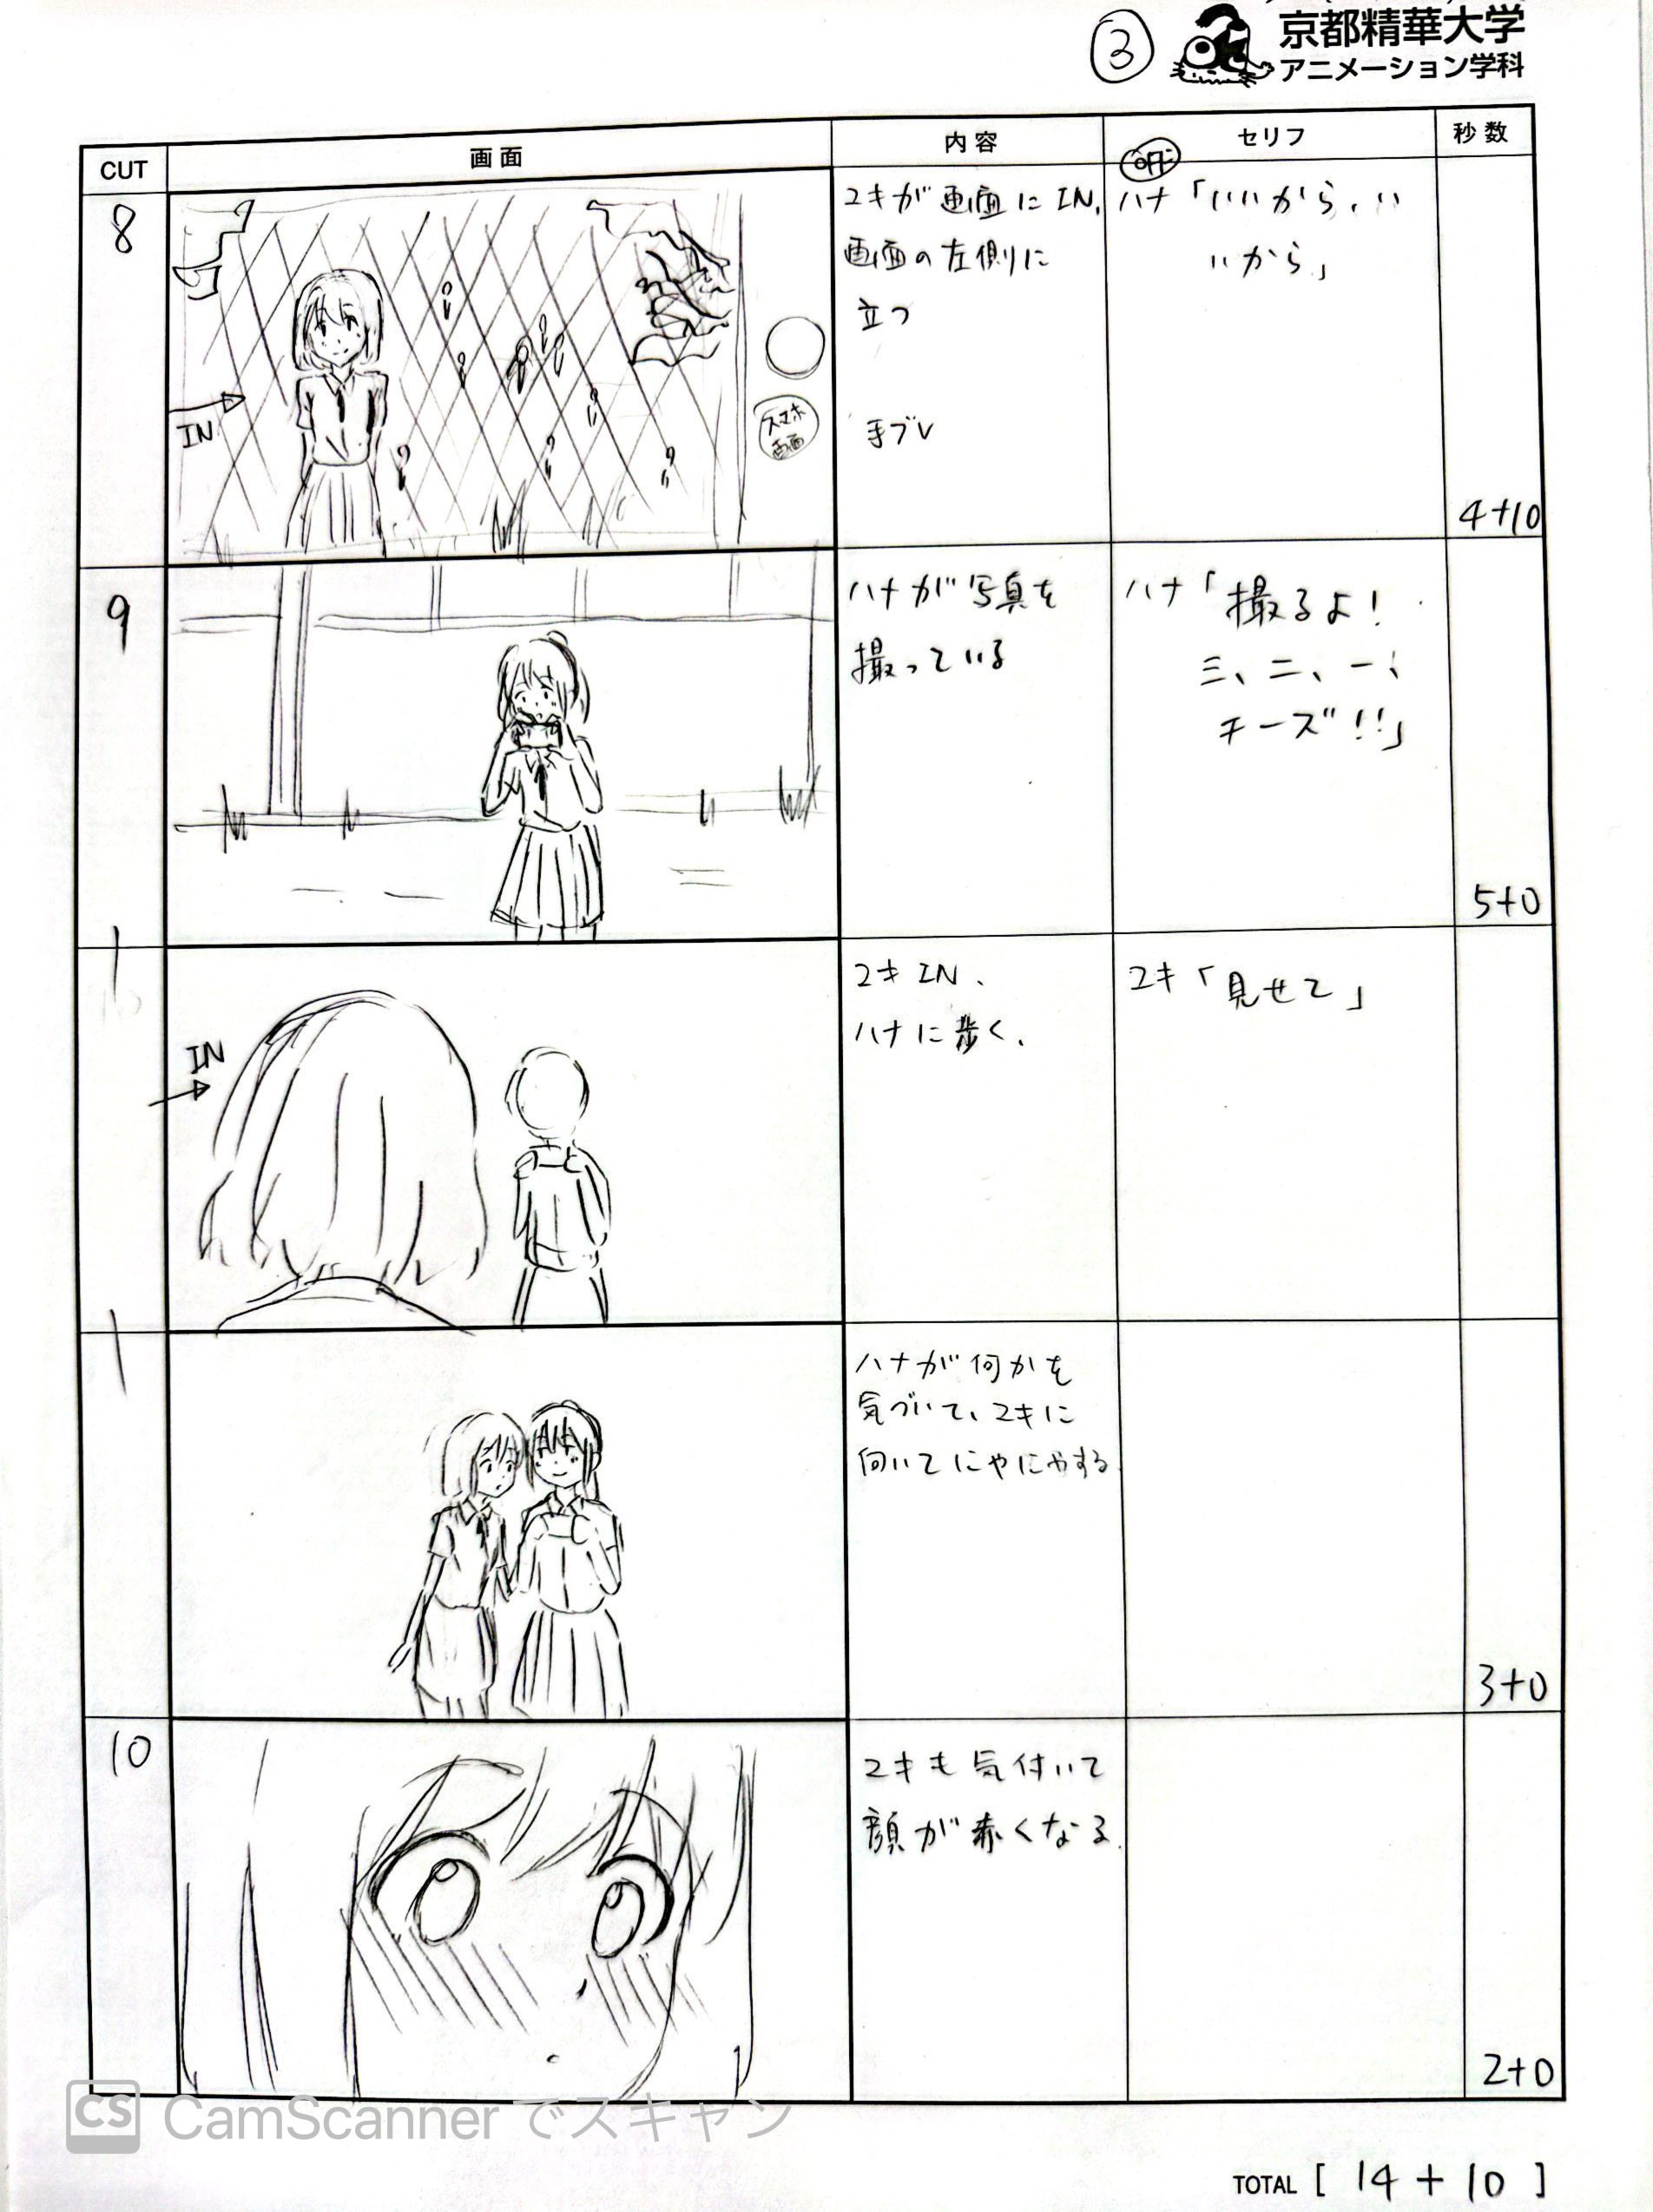 ③
京都精華大学
アニメーション学科
CUT
画面
内容
セリフ
秒数
8
IN
スマホ
画面
ユキが画面にIN.
画面の左側に
立つ
手ブレ
OFF
ハナ「いいから、い
いから」
4+10
9
ハナが写真を
撮っている
ハナ「撮るよ!
三、二、一、
チーズ!!」
5+0
IN
ユキIN、
ハナに歩く.
ユキ「見せて」
ハナが何かを
気づいて、ユキに
向いてにやにやする
3+0
10
ユキも気付いて
顔が赤くなる.
2+0
CS CamScannerでスキャン
TOTAL [ 14 + 10 ]